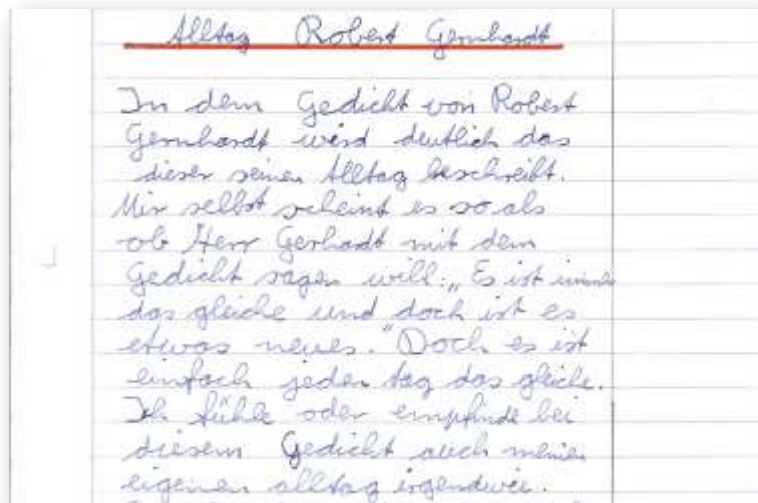 Alltag Robert Gernhardt
In dem Gedicht von Robert
Gernhardt wird deutlich das
dieser seinen Alltag beschreibt.
Mir selbst scheint es so als
ob Herr Gerhardt mit dem
Gedicht sagen will: „Es ist immer
das gleiche und doch ist es
etwas neues." Doch es ist
einfach jeden tag das gleiche.
Ich fühle oder empfinde bei
diesem Gedicht auch meinen
eigenen alltag irgendwei.